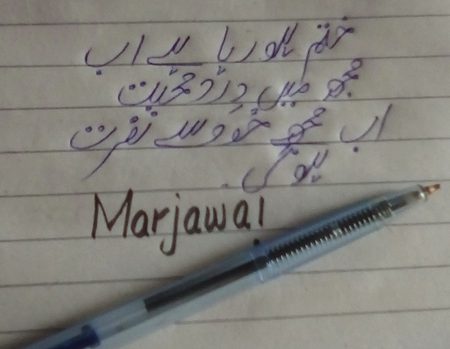 ختم ہو رہا ہے اب
مجھ میں درد محبت
اب مجھے خود سے نفرت
ہو گی
Marjawa!